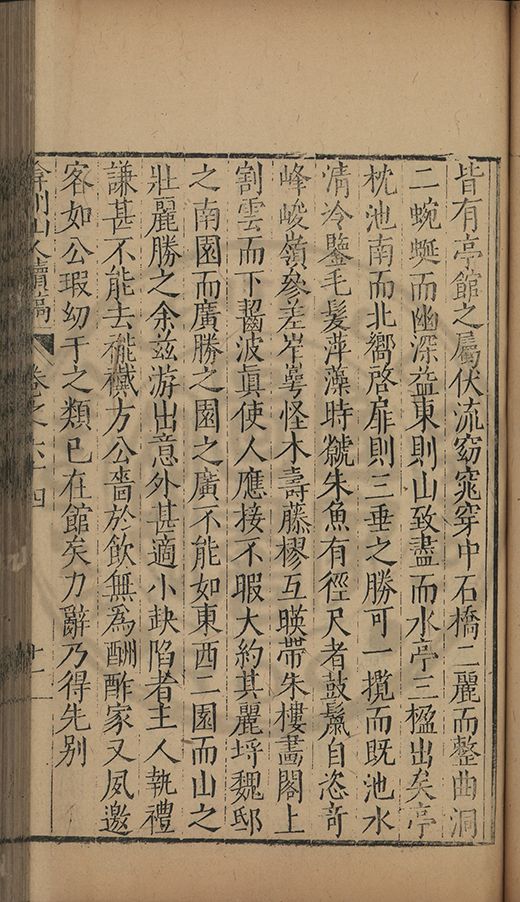 皆有亭館之屬伏流窈窕穿中石橋二麗而整曲洞
二蜿蜒而幽深益東則山致盡而水亭三楹出矣亭
枕池南而北嚮啓扉則三垂之勝可一攬而既池水
清冷鑒毛髮萍藻時虧朱魚有徑尺者鼓鬣自恣奇
峰峻嶺參差岝崿怪木壽藤樛互暎帶朱樓畫閣上
割雲而下齧波眞使人應接不暇大約其麗埒魏邸
之南園而廣勝之園之廣不能如東西二園而山之
壯麗勝之余茲游出意外甚適小缺陷者主人執禮
謙甚不能去褦襶方公嗇於飲無爲酬酢家又夙邀
客如公瑕幼于之類已在館矣力辭乃得先別
弇州山人續稿 卷之六十四